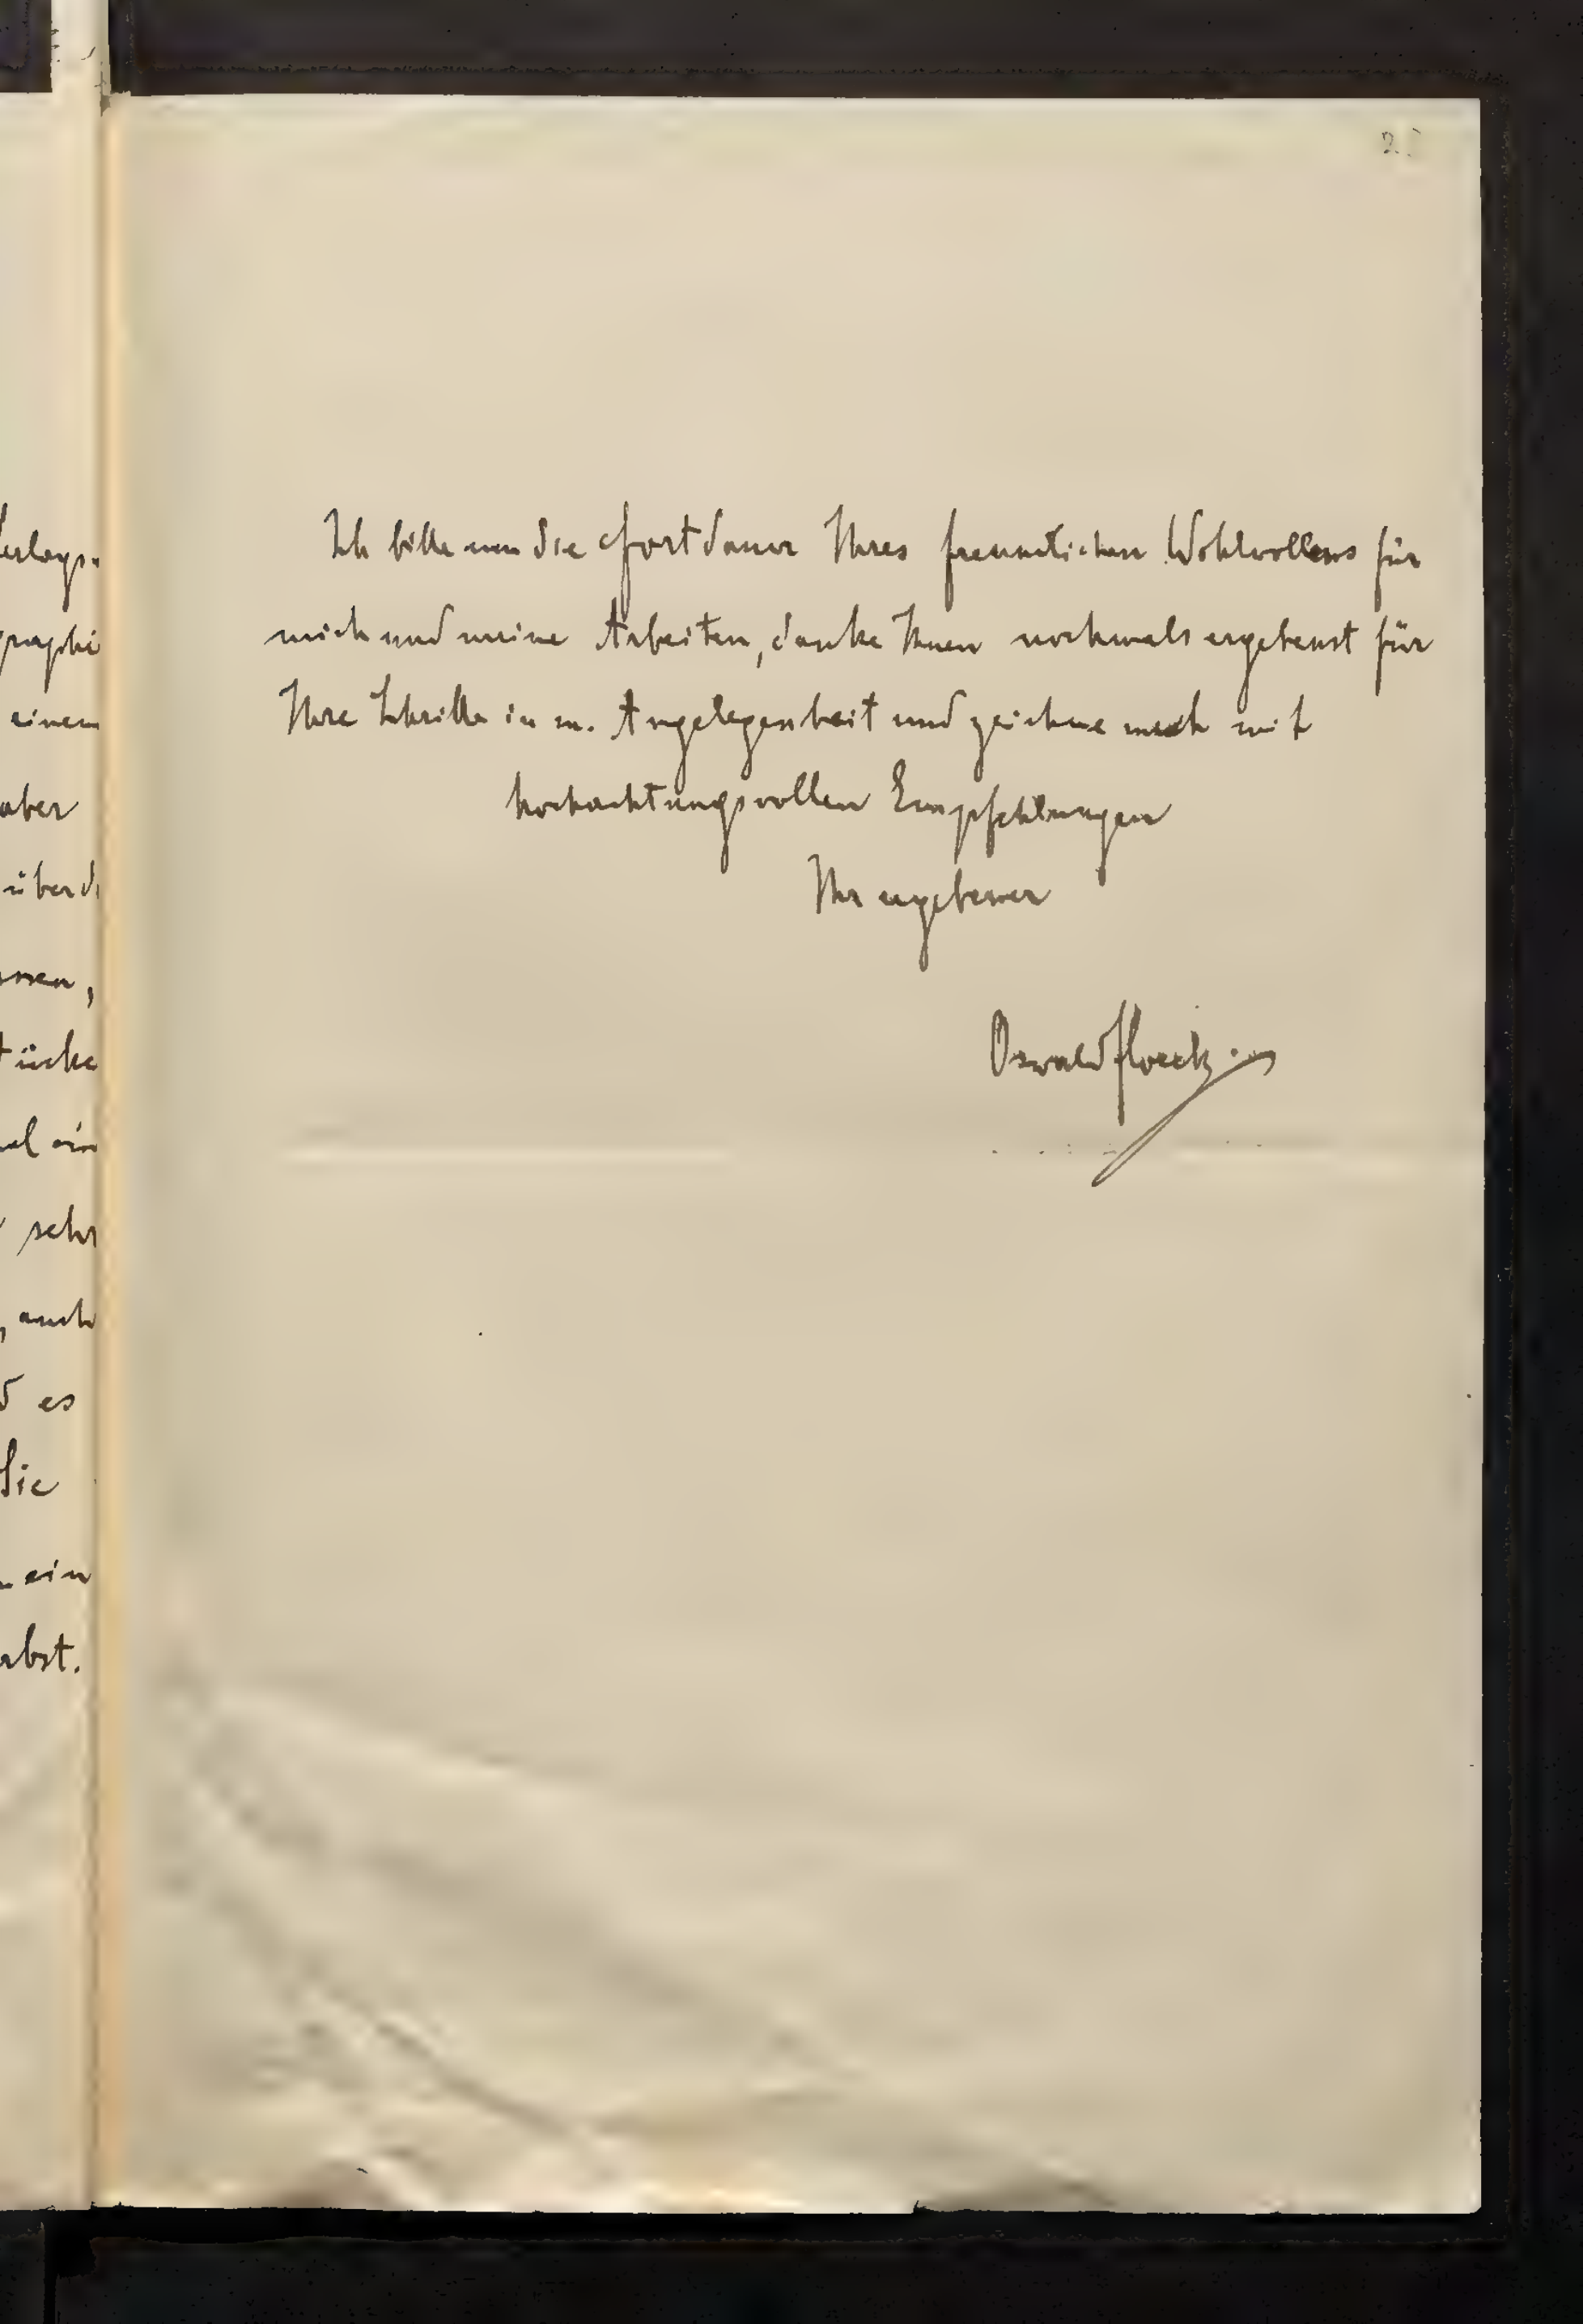 Ich bitte um die Fortdauer Ihres freundlichen Wohlwollens für
mich und meine Arbeiten, danke Ihnen nochmals ergebenst für
Ihre Schritte in m. Angelegenheit und zeichne mich mit
hochachtungsvollen Empfehlungen
Ihr ergebener
Oswald Floeck
einem
aber
sehr
, auch
es
Sie
ein